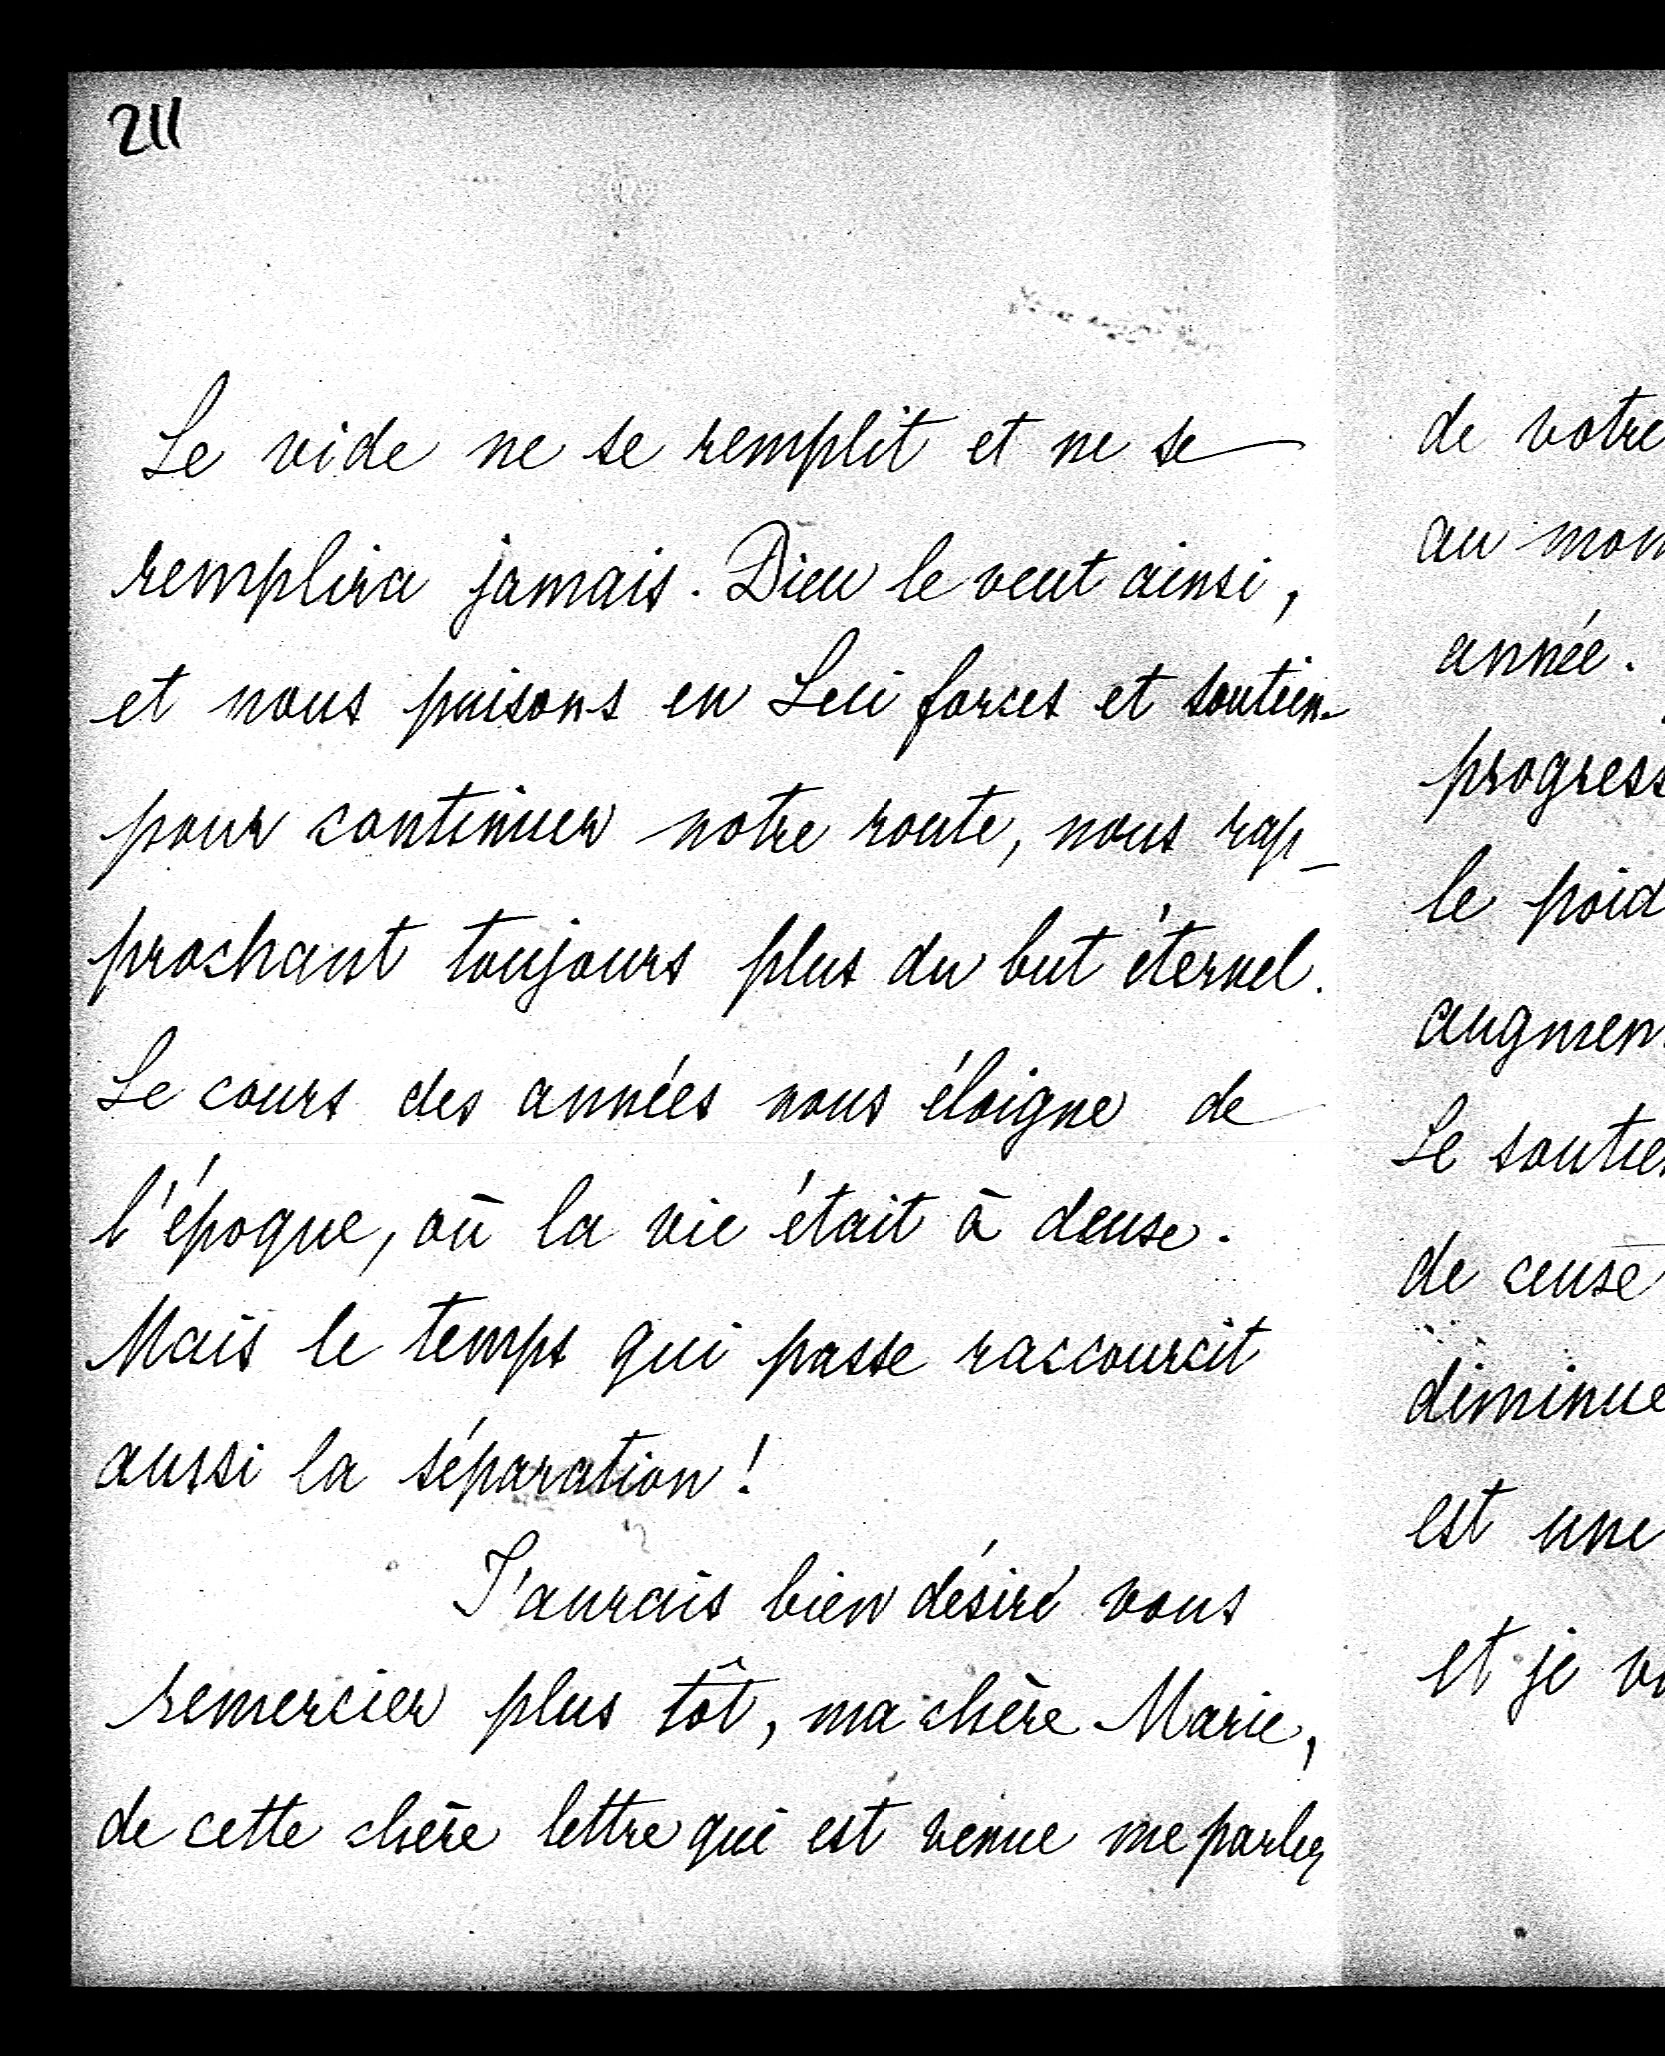 211
Le vide ne se remplit et ne se
remplira jamais. Dieu le veut ainsi,
et nous puisons en Lui forces et soutien
pour continuer notre route, nous rap-
prochant toujours plus du but éternel.
Le cours des années nous éloigne de
l'époque, où la vie était à deux.
Mais le temps qui passe raccourcit
aussi la séparation!
J'aurais bien désiré vous
remercier plus tôt, ma chère Marie,
de cette chère lettre qui est venue me parler
de votre
au mom
année.
progress
le poid
augmen
Le soutien
de ceux
diminue
est une
et je vo